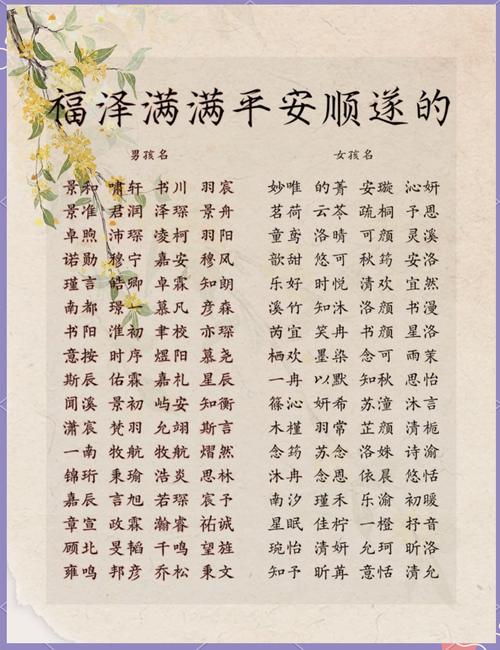 福泽满满平安顺遂的
男孩名 女孩名
景和 啸轩 书川 羽宸 妙唯 的菁 安璇 沁妍
景淮 君润 泽琛 景舟 茗荷 云苓 疏桐 予思
卓煦 沛琛 凌柯 羽阳 童鸢 洛晴 可颜 灵溪
诺勋 穆宁 嘉安 穆风 歆甜 悠可 秋药 安洛
瑾言 皓卿 卓霖 知朗 乐好 时悦 清欢 宜然
南都 璟一 慕凡 彦森 溪竹 知沐 洛颜 书漫
书阳 淮初 聿校 亦琛 芮宜 笑冉 书颜 星洛
意按 时序 煜阳 慕尧 栖欢 墨染 念可 雨茉
斯辰 佑霖 嘉礼 星辰 一冉 以默 知秋 思怡
闻溪 景初 屿安 知衡 筱沁 妍希 苏潼 沐言
潇宸 梵羽 允翊 斯言 木槿 羽常 芷颜 清栀
一南 牧航 牧航 熠然 念药 苏念 洛姝 诗渝
锦珩 秉瑜 浩炎 思林 沐冉 念思 依晨 悠恬
嘉辰 言旭 若琛 宸予 南汐 瑾禾 乐渝 初暖
章宣 政霖 瀚睿 祐诚 星眠 佳柠 一橙 抒音
顾北 旻韬 千鸣 望旌 琬怡 清妍 允珂 昕洛
雍鸣 邦彦 乔松 秉文 知予 昕苒 意恬 清允